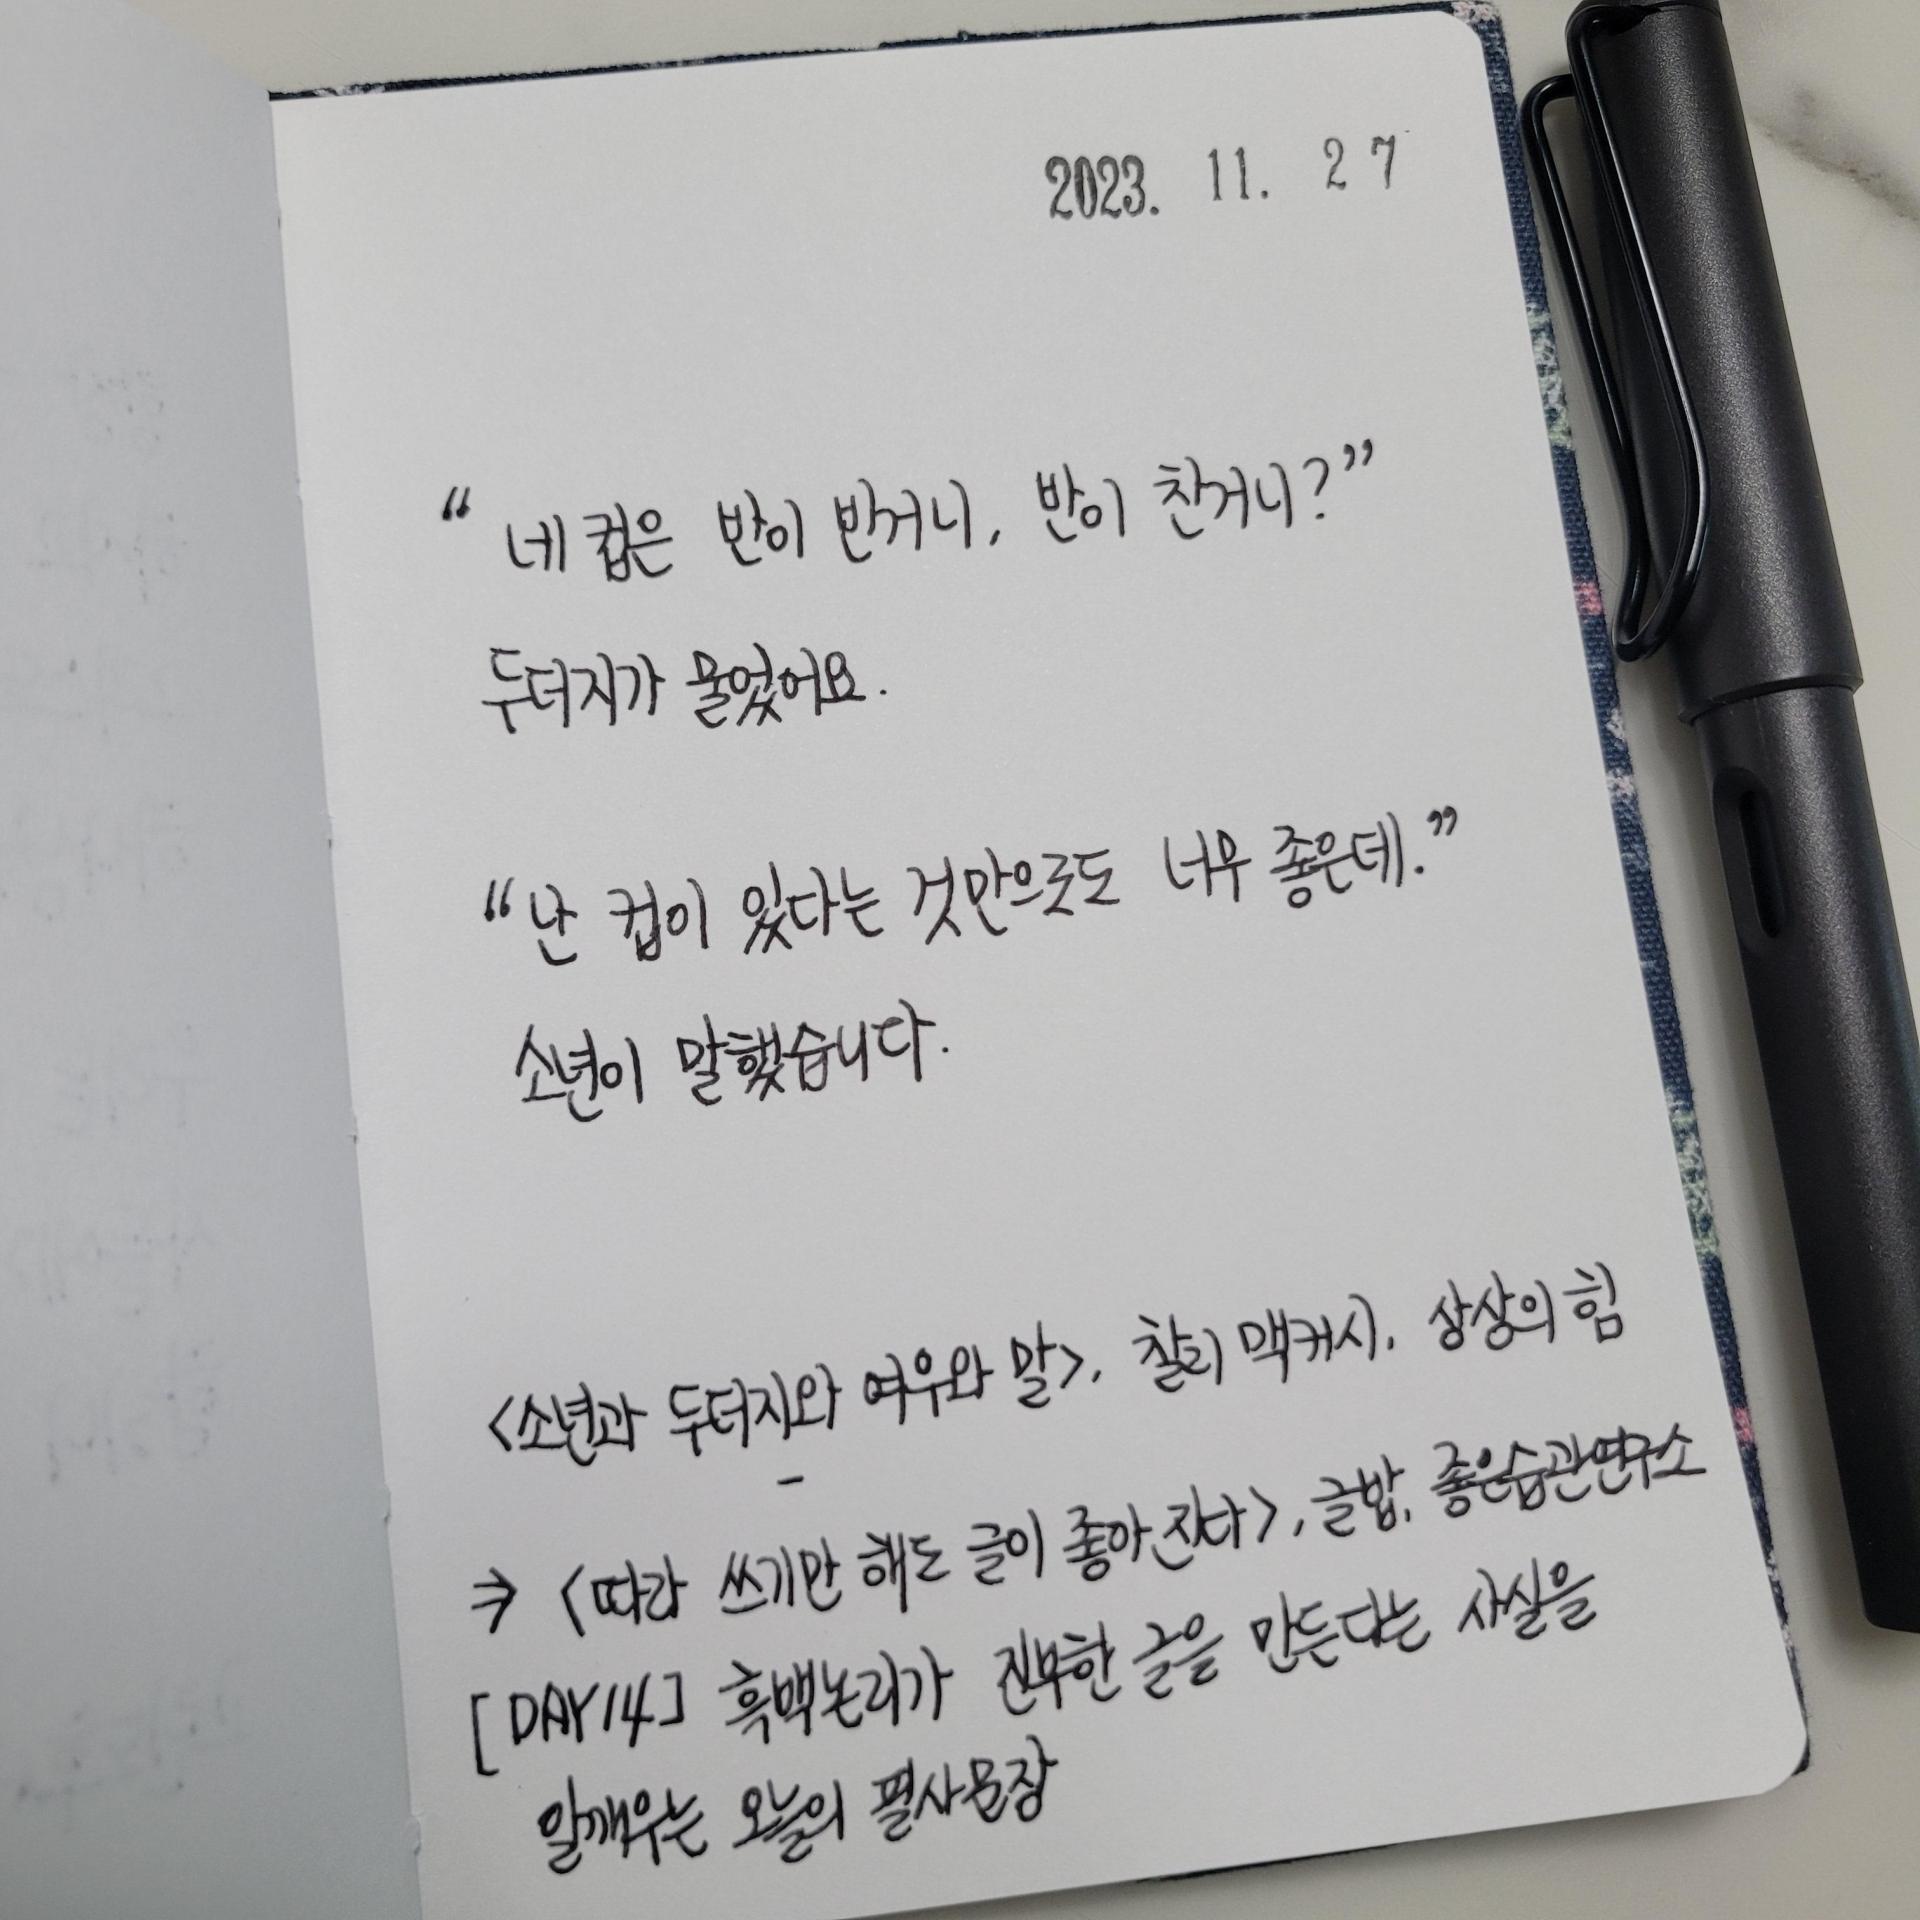 2023. 11. 27
“네 컵은 반이 빈거니, 반이 찬거니?”
두더지가 물었어요.
“난 컵이 있다는 것만으로도 너무 좋은데.”
소년이 말했습니다.
<소년과 두더지와 여우와 말>, 찰리 맥커시, 상상의힘
→ <따라 쓰기만 해도 글이 좋아진다>, 글밥, 좋은습관연구소
[DAY14] 흑백논리가 진부한 글을 만든다는 사실을
일깨우는 오늘의 필사문장